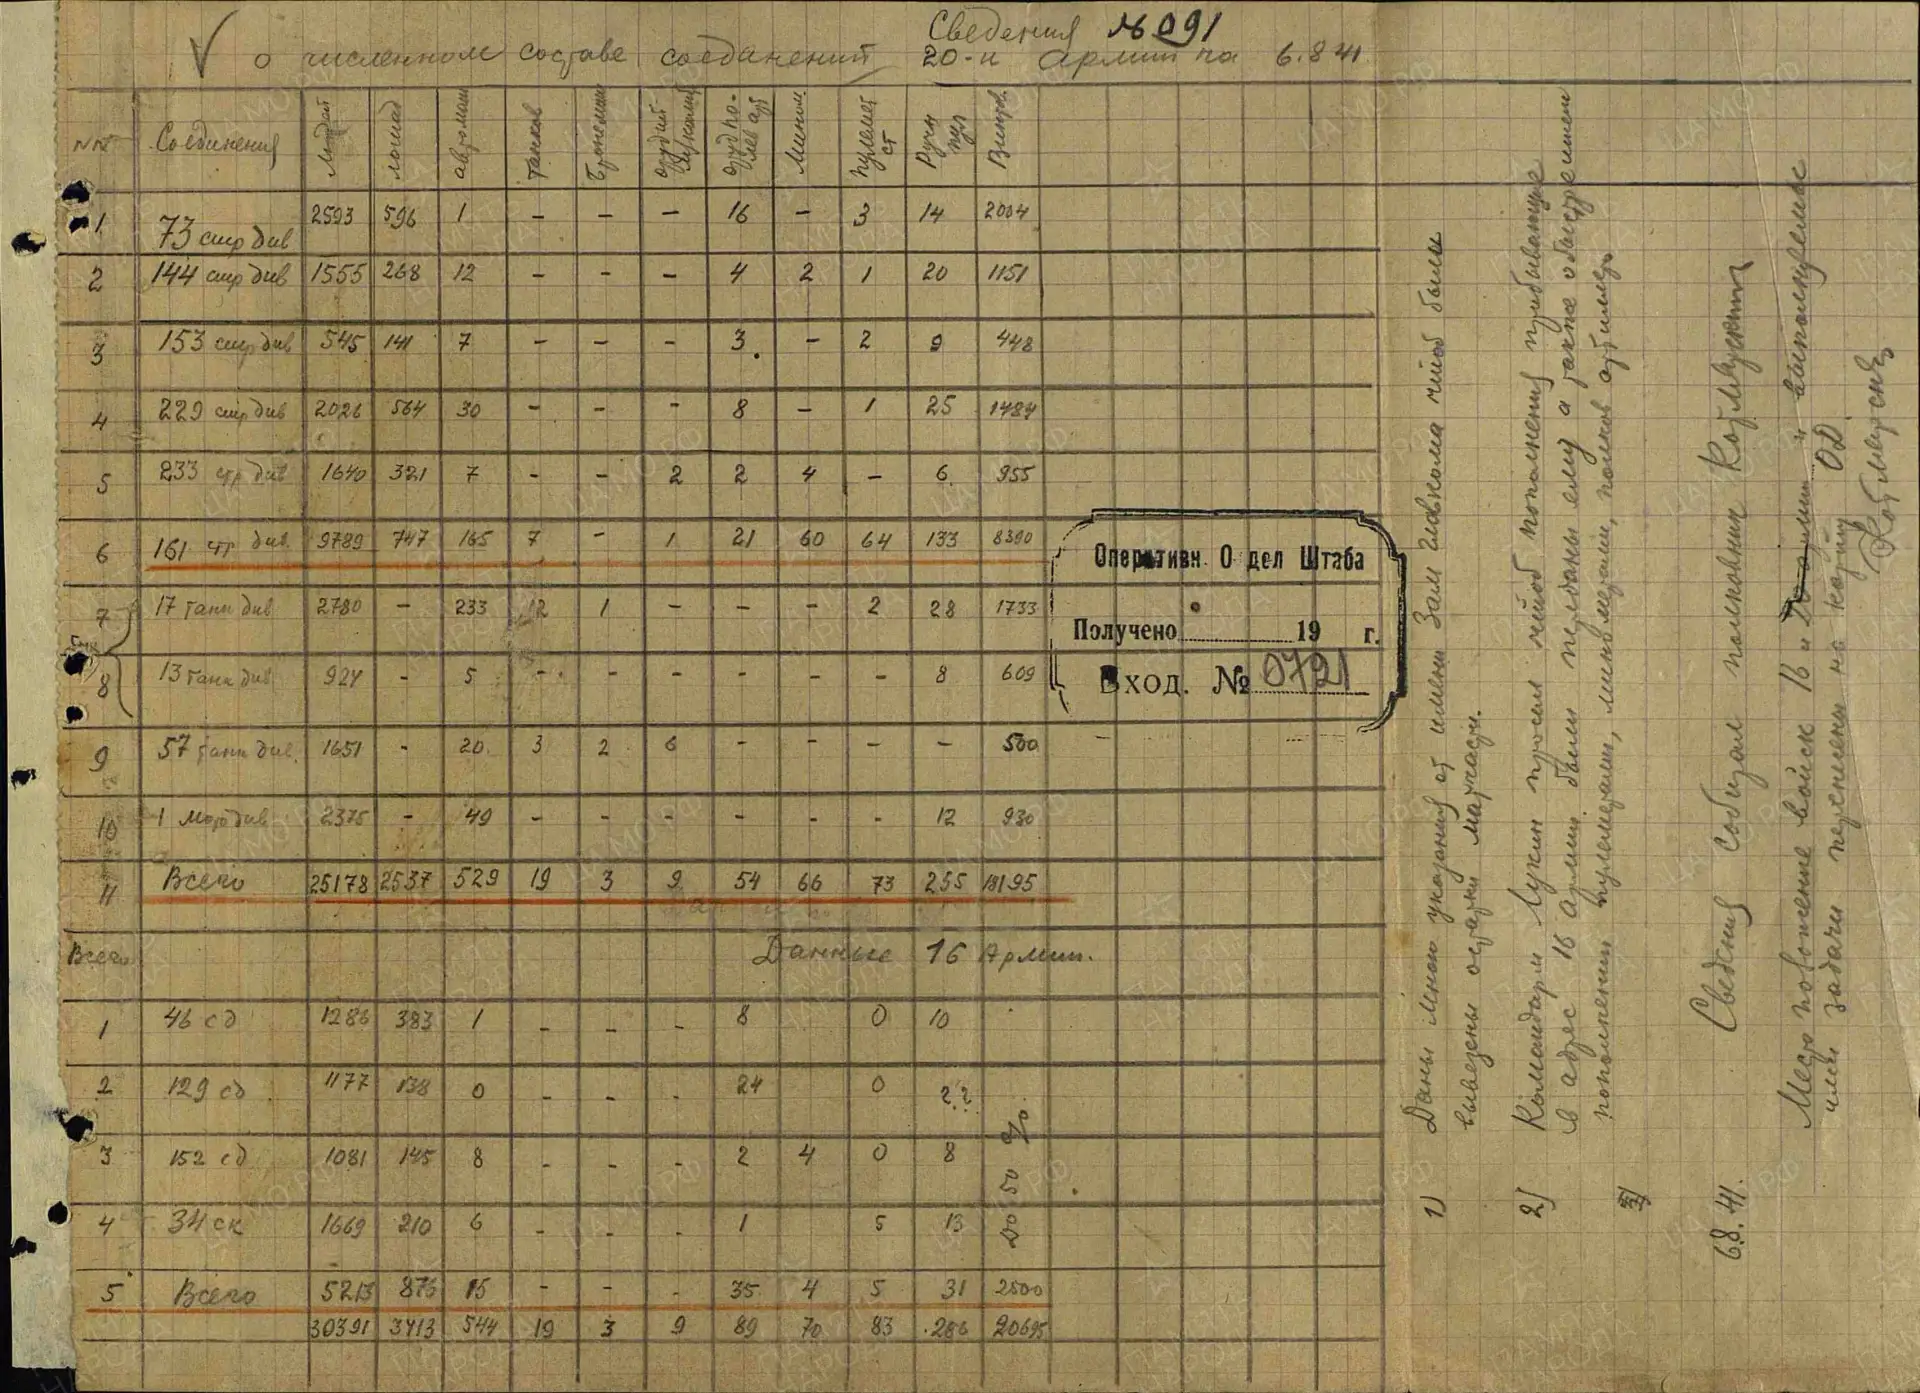 Сведения №091
о численном составе соединений 20-й армии на 6.8 41
№№ Соединения Людей Лошад автомаш танков бронемаш орудий Мином. пулемет ст Ручн пул Винтов.
1 73 стр див 2593 596 1 – – – 16 – 3 14 2004
2 144 стр див 1555 268 12 – – – 4 2 1 20 1151
3 153 стр див 545 141 7 – – – 3 – 2 9 448
4 229 стр див 2026 564 30 – – – 8 – 1 25 1484
5 233 стр див 1640 321 7 – – 2 2 4 – 6 955
6 161 стр див. 9789 747 165 7 – 1 21 60 64 133 8390
7 17 танк див 2780 – 233 12 1 – – – 2 28 1733
8 13 танк див 924 – 5 – – – – – – 8 609
9 57 танк див. 1651 – 20 3 2 6 – – – – 500
10 1 мот див 2375 – 49 – – – – – – 12 930
11 Всего 25178 2537 529 19 3 9 54 66 73 255 18195
Всего Данные 16 Армии.
1 46 сд 1286 383 1 – – – 8 0 10
2 129 сд 1177 138 0 – – – 24 0 2?
3 152 сд 1081 145 8 – – – 2 4 0 8
4 34 ск 1669 210 6 – – – 1 5 13
До 50 %
5 Всего 5213 876 15 – – – 35 4 5 31 2500
30391 3413 544 19 3 9 89 70 83 286 20695
Оперативн. О дел Штаба
Получено 19 г.
Вход. № 0721
1) Даны мною указания от имени Зам Главкома чтоб были
вывезены остатки матчасти.
2) Командарм Лукин просил чтоб пополнения прибывающие
в адрес 16 армии были переданы ему а также о быстрейшем
пополнении пулеметами, минометами, полков артиллер
3)
6.8.41. Сведения собирал полковник
Место положение войск 16 и 20 армии и выполняемые
ими задачи перенесены на карту ОД.